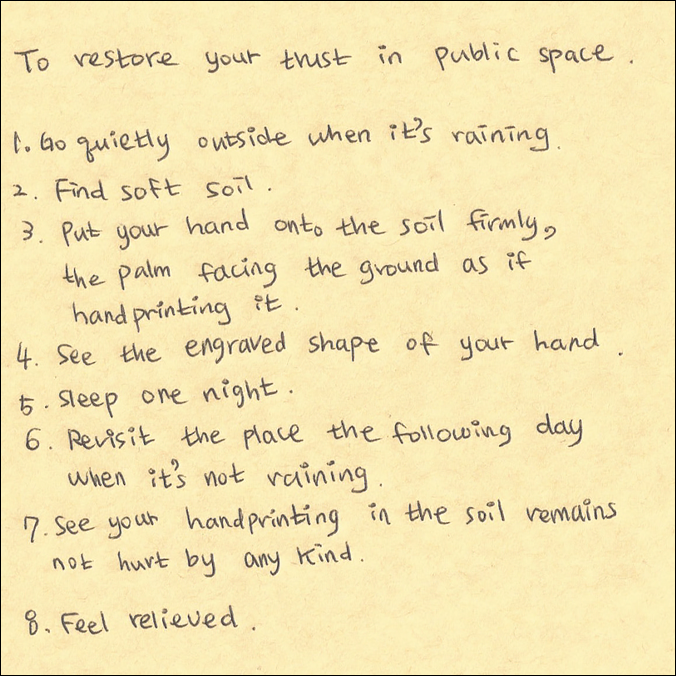 To restore your trust in public space.
1. Go quietly outside when it's raining.
2. Find soft soil.
3. Put your hand onto the soil firmly,
the palm facing the ground as if
handprinting it.
4. See the engraved shape of your hand.
5. Sleep one night.
6. Revisit the place the following day
when it's not raining.
7. See your handprinting in the soil remains
not hurt by any kind.
8. Feel relieved.